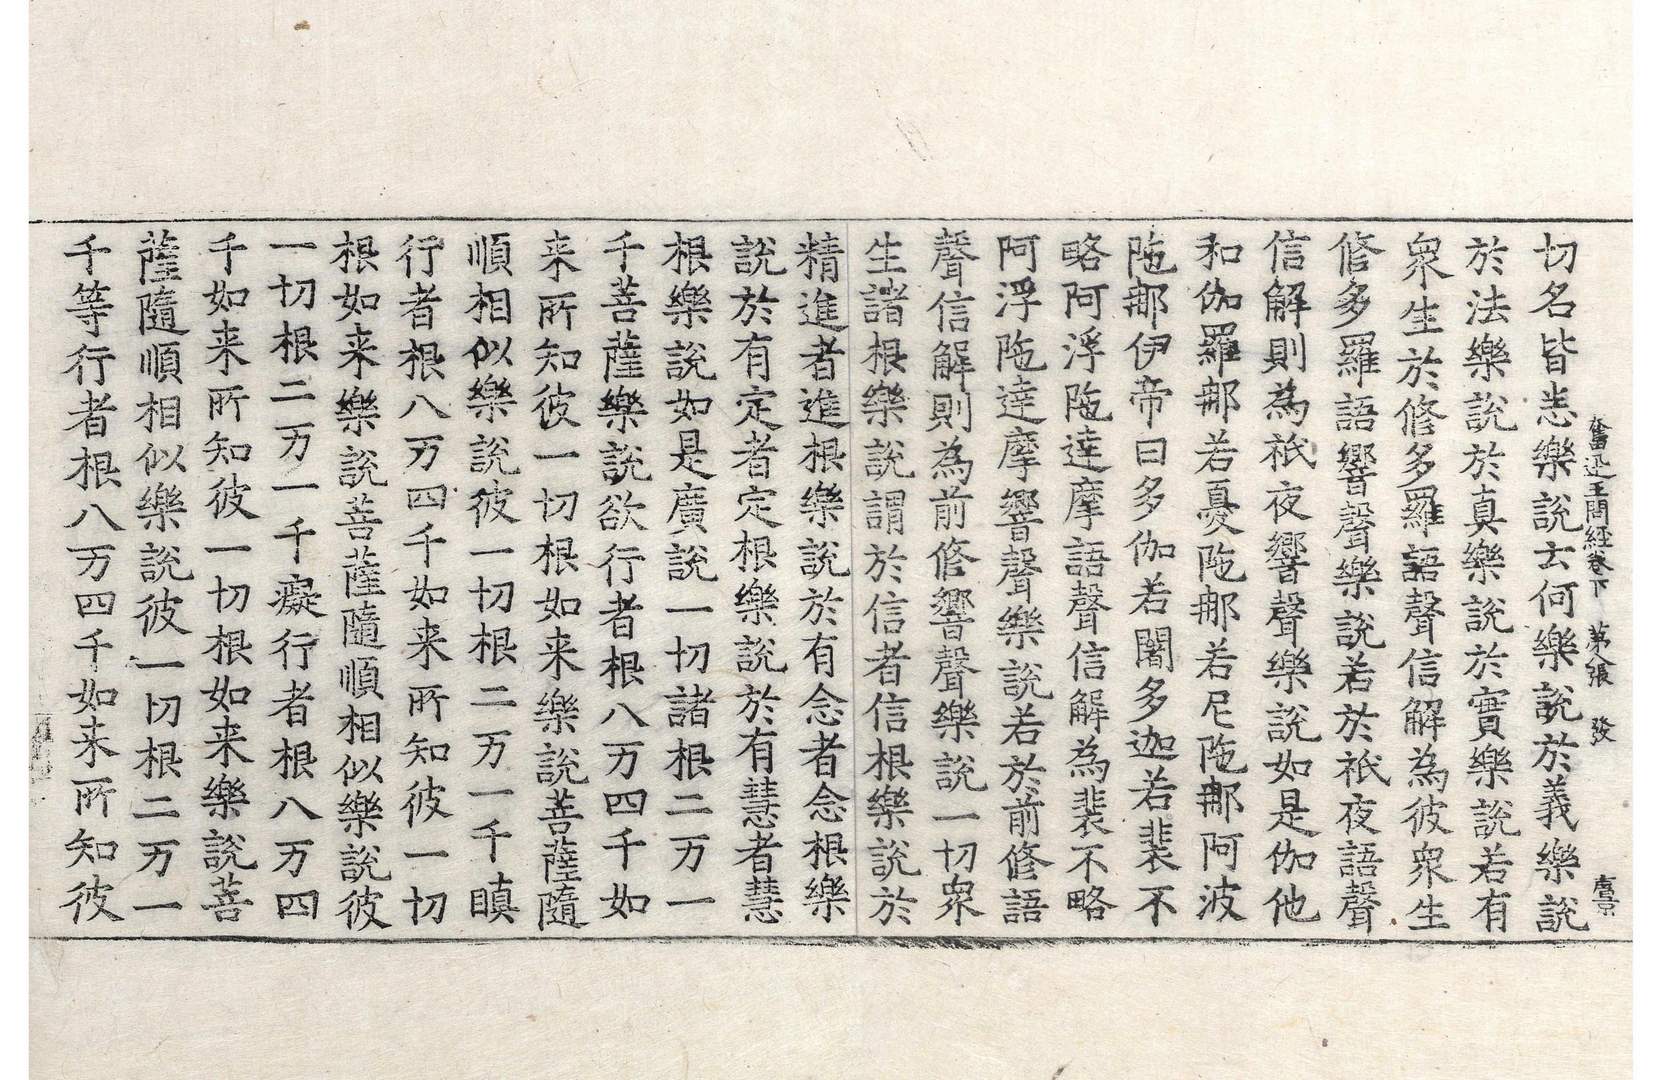 奮迅王問經卷下　第 張　發　唐景
切名皆悉樂說云何樂說於義樂說
於法樂說於真樂說於實樂說若有
衆生於修多羅語聲信解為彼衆生
修多羅語響聲樂說若於祇夜語聲
信解則為祇夜響聲樂說如是伽他
和伽羅那若憂陁那若尼陁那阿波
陁那伊帝曰多伽若闍多迦若裴不
略阿浮陁達摩語聲信解為裴不略
阿浮陁達摩響聲樂說若於前修語
聲信解則為前修響聲樂說一切衆
生諸根樂說謂於信者信根樂說於
精進者進根樂說於有念者念根樂
說於有定者定根樂說於有慧者慧
根樂說如是廣說一切諸根二万一
千菩薩樂說欲行者根八万四千如
来所知彼一切根如来樂說菩薩隨
順相似樂說彼一切根二万一千瞋
行者根八万四千如来所知彼一切
根如来樂說菩薩隨順相似樂說彼
一切根二万一千癡行者根八万四
千如来所知彼一切根如来樂說菩
薩隨順相似樂說彼一切根二万一
千等行者根八万四千如来所知彼